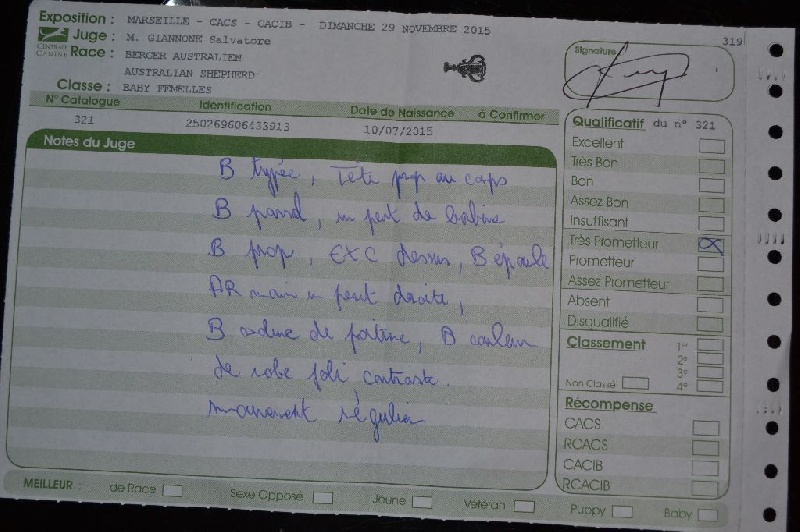 Exposition : MARSEILLE - CACS - CACIB - DIMANCHE 29 NOVEMBRE 2015
Juge : M. GIANNONE Salvatore
CENTRALE CANINE
Race : BERGER AUSTRALIEN
AUSTRALIAN SHEPHERD
Classe : BABY FEMELLES
319
Signature
N° Catalogue Identification Date de Naissance à Confirmer
321 250269606433913 10/07/2015
Notes du Juge
B typée, Tête prop au corps
B , un peut de babine
B prop, EXC dessus, B épaule
AR main un peut droite,
B de poitrine, B couleur
de robe joli contraste.
mouvement régulier
Qualificatif du n° 321
Excellent
Très Bon
Bon
Assez Bon
Insuffisant
Très Prometteur X
Prometteur
Assez Prometteur
Absent
Disqualifié
Classement 1er
2e
3e
Non Classé 4e
Récompense
CACS
RCACS
CACIB
RCACIB
MEILLEUR : de Race Sexe Opposé Jeune Vétéran Puppy Baby